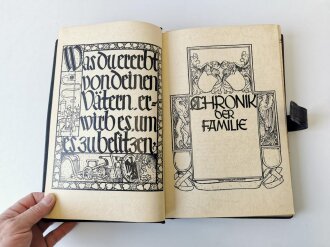 Was du ererbt
von deinen
Vätern, er-
wirb es, um
es zu besitzen.
CHRONIK
DER
FAMILIE